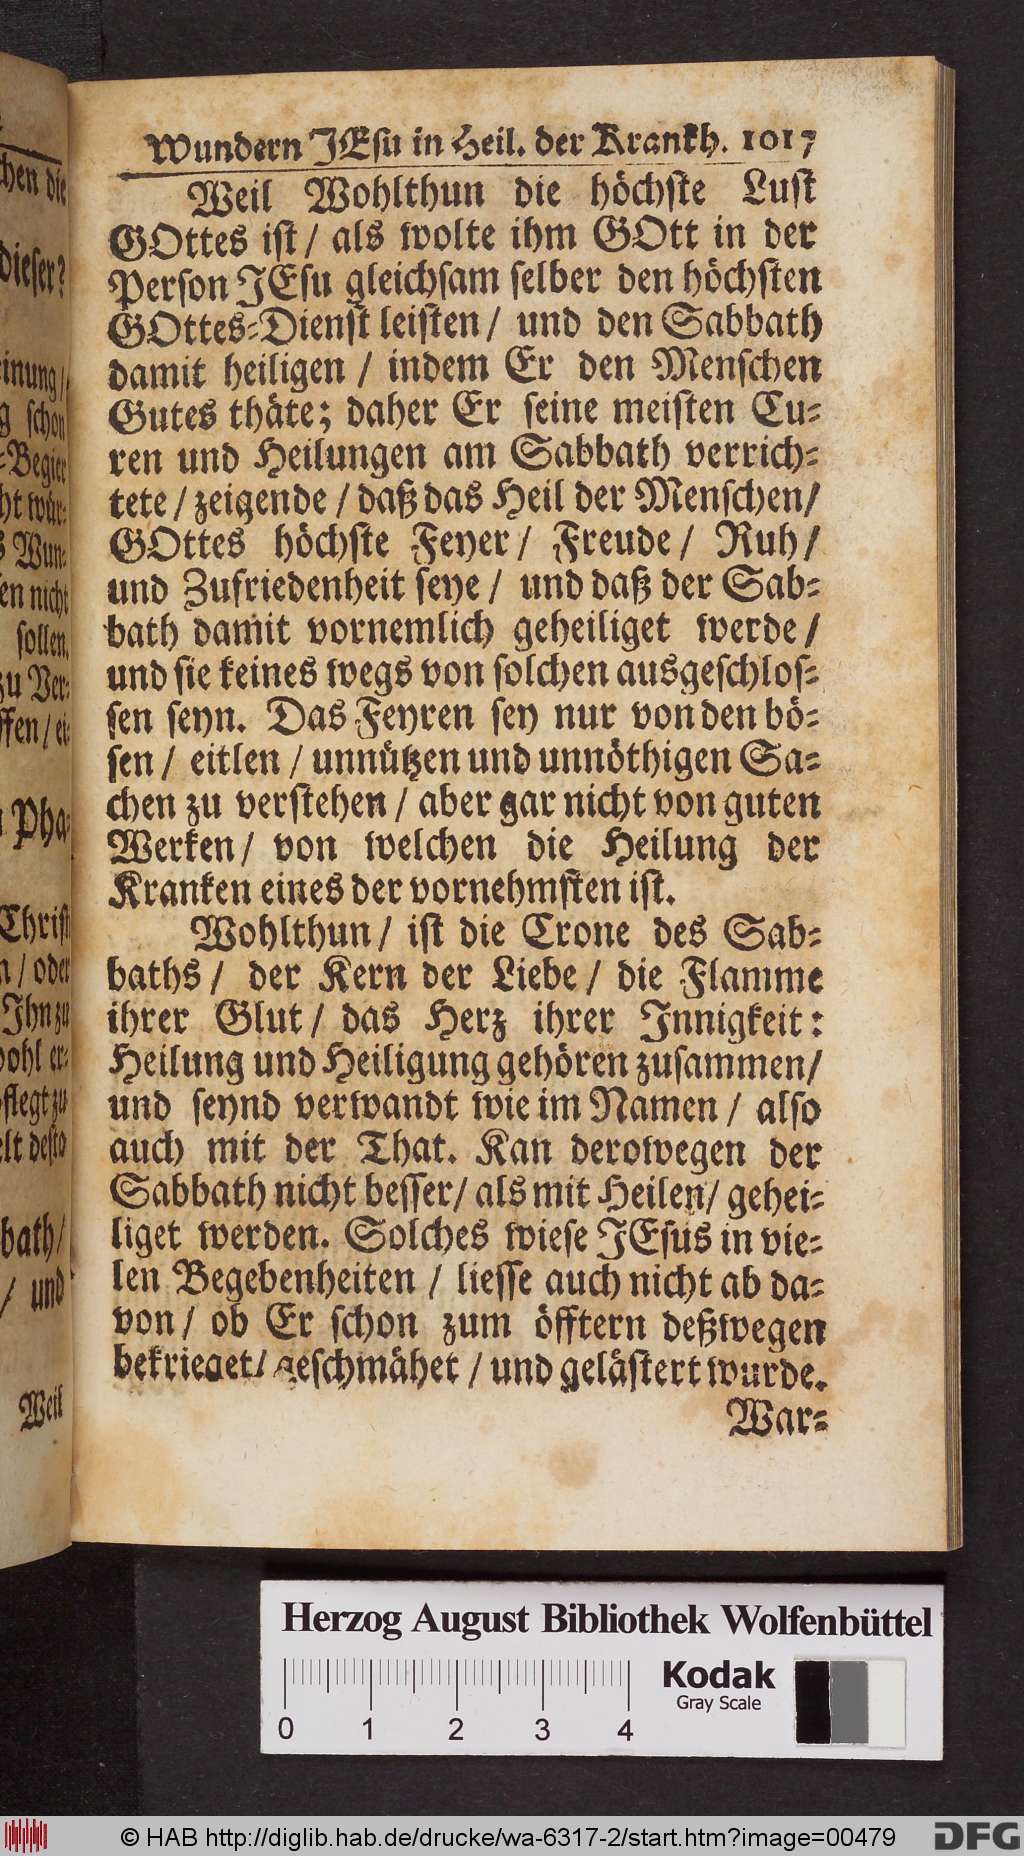 Wundern JEsu in Heil. der Krankh. 1017
Weil Wohlthun die höchste Lust
GOttes ist / als wolte ihm GOtt in der
Person JEsu gleichsam selber den höchsten
GOttes-Dienst leisten / und den Sabbath
damit heiligen / indem Er den Menschen
Gutes thäte; daher Er seine meisten Cu-
ren und Heilungen am Sabbath verrich-
tete / zeigende / daß das Heil der Menschen /
GOttes höchste Feyer / Freude / Ruh /
und Zufriedenheit seye / und daß der Sab-
bath damit vornemlich geheiliget werde /
und sie keines wegs von solchen ausgeschlos-
sen seyn. Das Feyren sey nur von den bö-
sen / eitlen / unnützen und unnöthigen Sa-
chen zu verstehen / aber gar nicht von guten
Werken / von welchen die Heilung der
Kranken eines der vornehmsten ist.
Wohlthun / ist die Crone des Sab-
baths / der Kern der Liebe / die Flamme
ihrer Glut / das Herz ihrer Innigkeit:
Heilung und Heiligung gehören zusammen /
und seynd verwandt wie im Namen / also
auch mit der That. Kan derowegen der
Sabbath nicht besser / als mit Heilen / gehei-
liget werden. Solches wiese JEsus in vie-
len Begebenheiten / liesse auch nicht ab da-
von / ob Er schon zum öfftern deßwegen
bekrieget / geschmähet / und gelästert wurde.
War-
chen die
dieser?
inung /
schon
-Begier
ht wür-
Wun-
en nicht
sollen.
zu Ver-
ffen / ei-
Pha-
Christ
n / oder
Ihn zu
wohl er-
pflegt zu
elt desto
bath /
/ und
Weil
Herzog August Bibliothek Wolfenbüttel
Kodak
Gray Scale
0 1 2 3 4
© HAB http://diglib.hab.de/drucke/wa-6317-2/start.htm?image=00479
DFG